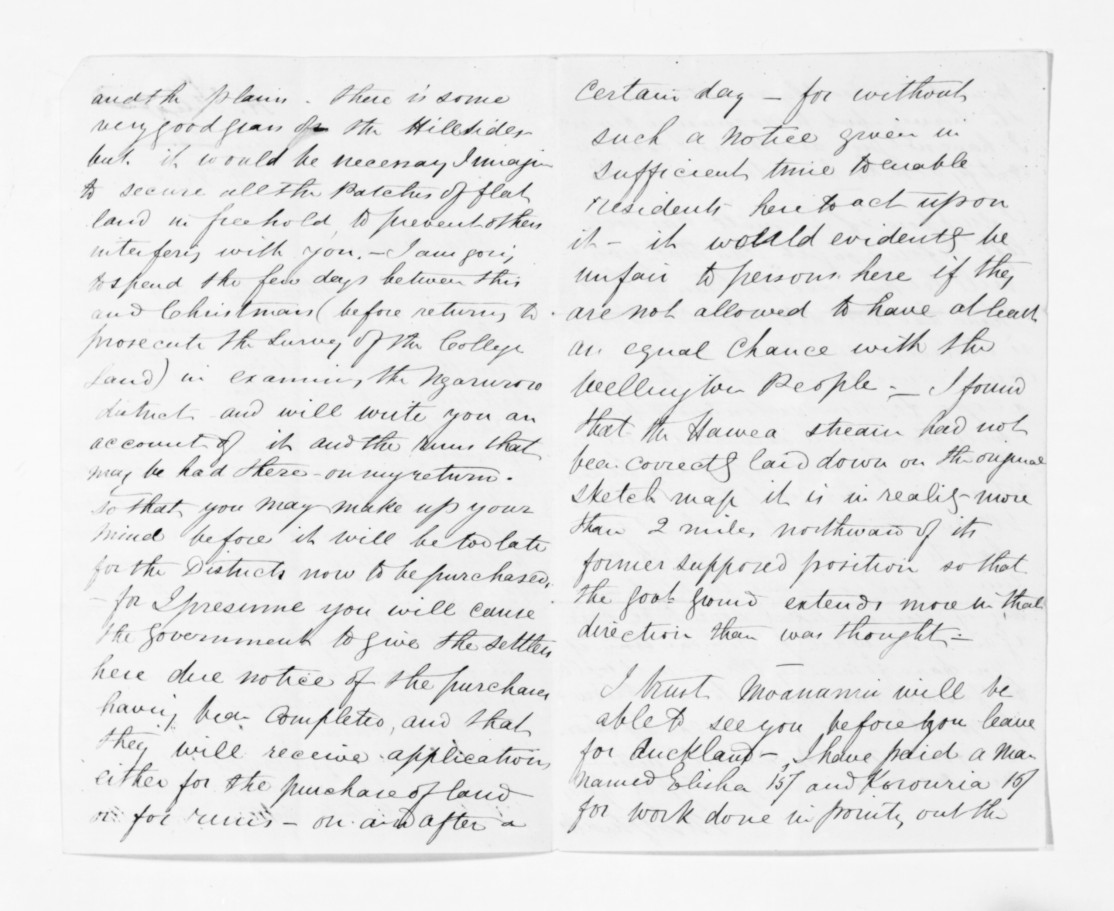 and the plains. There is some
very good grass on the Hillsides
but it would be necessary I imagin
to secure all the Patches of flat
land in freehold, to prevent others
interfering with you. - I am going
to spend the few days between this
and Christmas (before returning to
prosecute the Survey of the College
Land) in examining the Ngaruroro
district - and will write you an
account of it and the runs that
may be had there - on my return.
So that you may make up your
mind before it will be too late
for the Districts now to be purchased,
- for I presume you will cause
the Government to give the settlers
here due notice of the purchases
having been completed, and that
they will receive applications
either for the purchase of land
or for runs - on and after a
certain day - for without
such a notice given in
sufficient time to enable
residents here to act upon
it - it would evidently be
unfair to persons here if they
are not allowed to have at least
an equal Chance with the
Wellington People. - I found
that the Hawea stream had not
been correctly laid down on the original
sketch map it is in reality more
than 2 miles northward of its
former supposed position so that
the good ground extends more in that
direction than was thought -
I trust will be
able to see you before you leave
for Auckland - I have paid a man
named Elisha 15/ and 15/
for work done in pointing out the